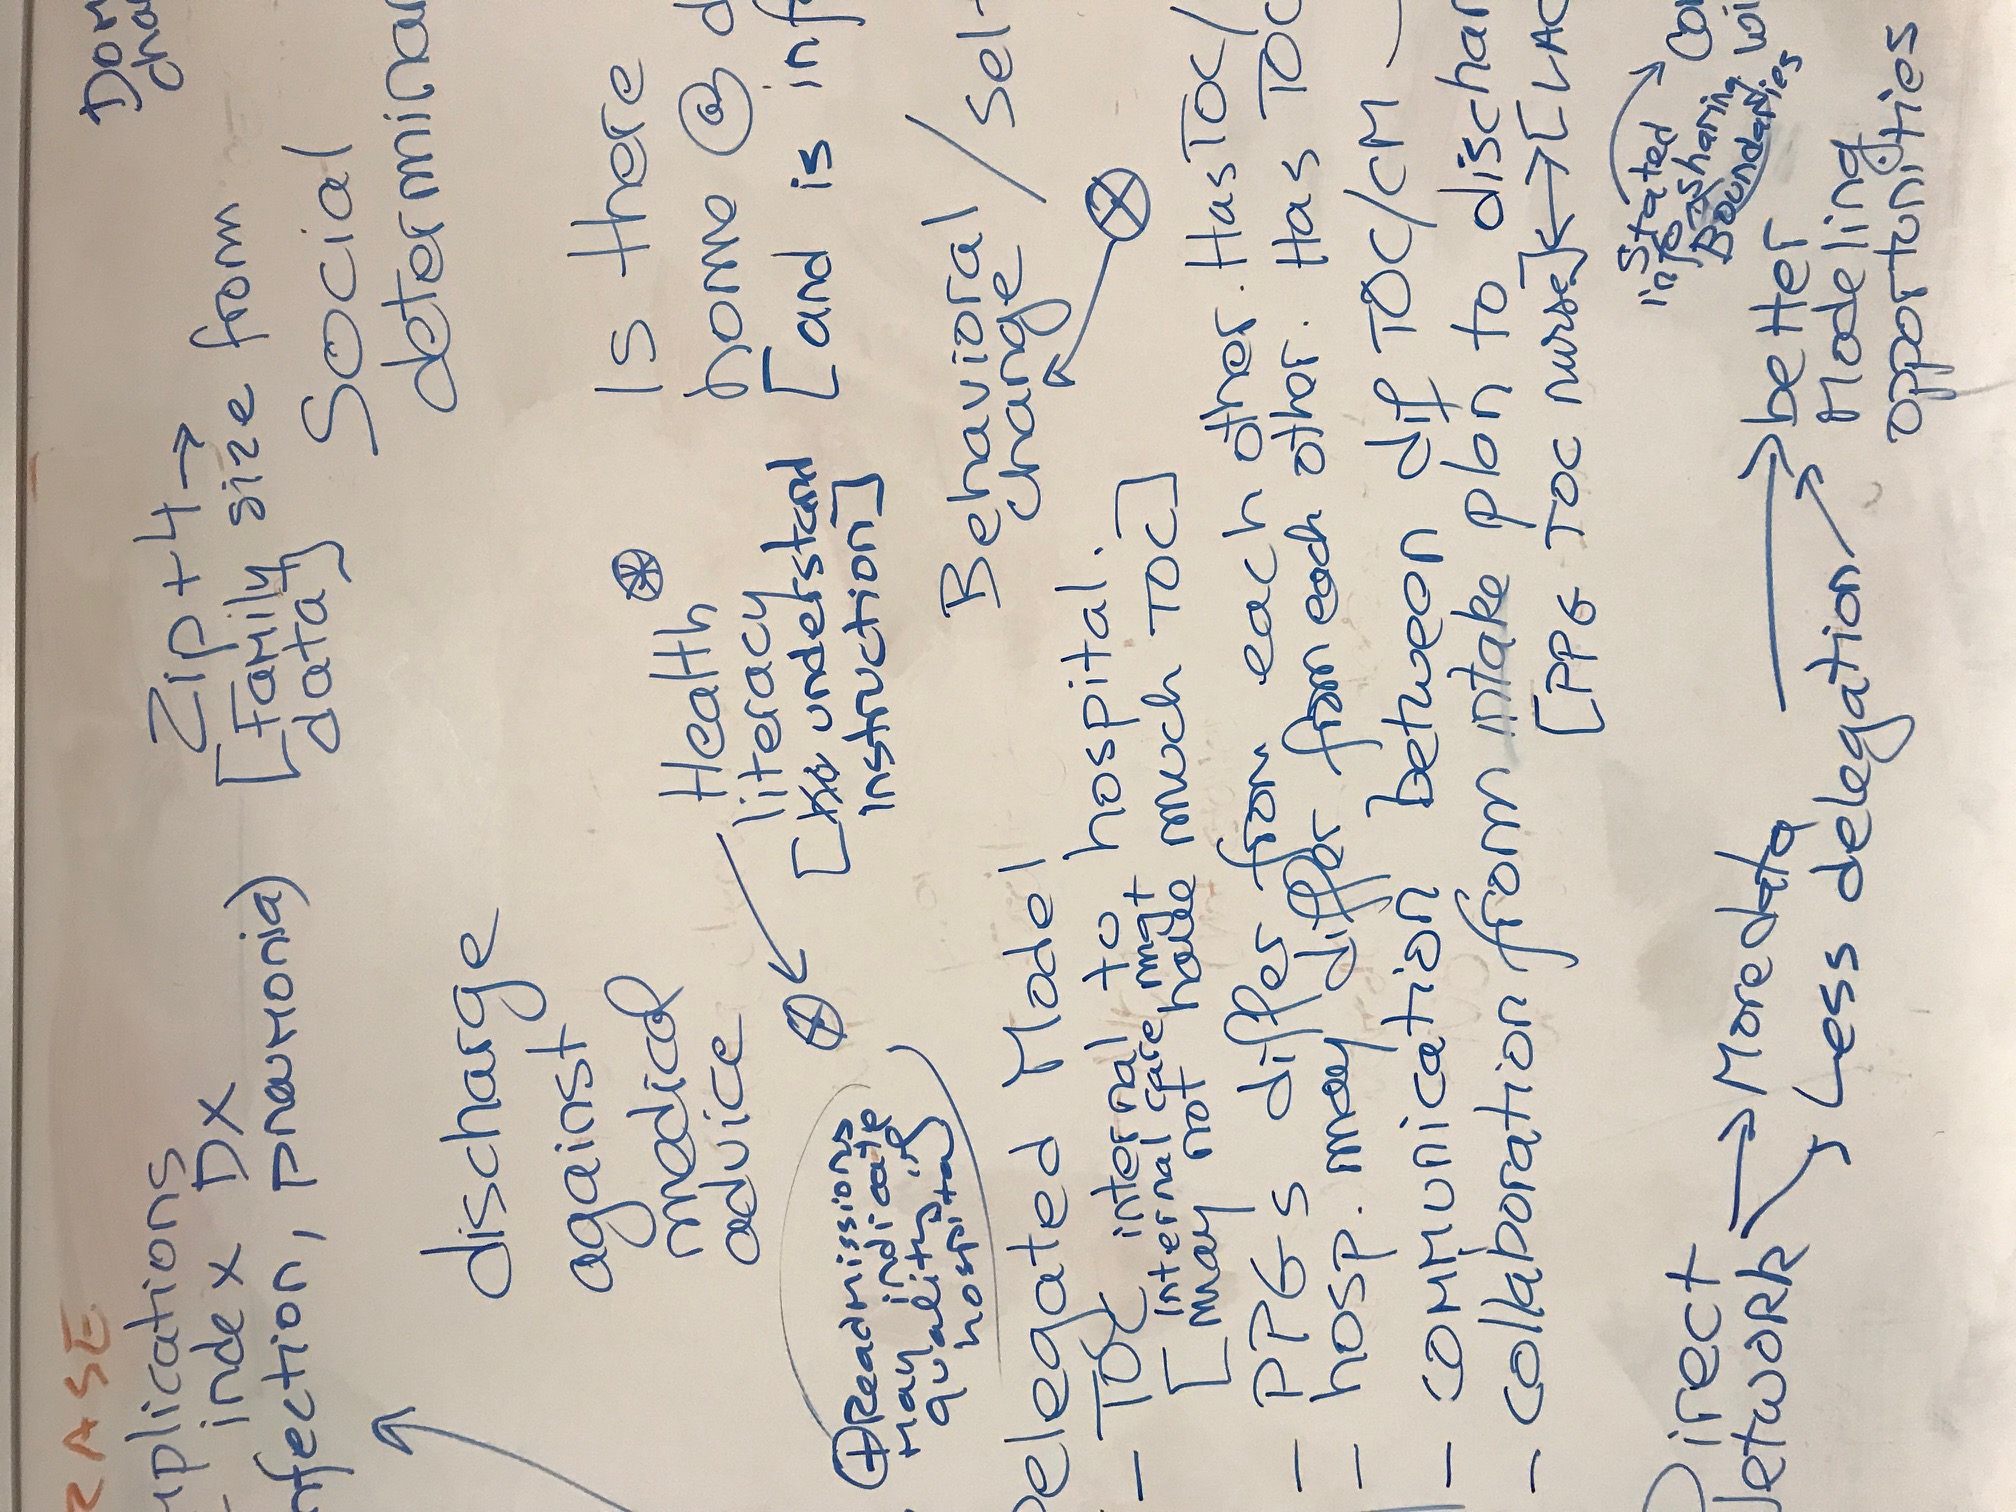 RASE
plications
- index DX
nfection, pneumonia)
Zip+4→
[Family size from
data]
Dom
cha
Social
determinan
discharge
against
medical
advice
Health
literacy
[understand
instruction]
Is there
home @ d
[and is inf
+ Readmissions
may indicate
quality of
hospital
Behavioral / Self-
change
Delegated Model
- TOC internal to hospital.
internal care mgt
[may not have much TOC]
- PPGs differ from each other. Has TOC/
- hosp. may differ from each other. Has TOC
- communication between dif TOC/CM
- collaboration from intake plan to dischar
[PPG TOC nurse]↔[LAC
Stated
info-sharing
Boundaries
con
wi
Direct
Network
→ More data
Less delegation
→ better
modeling
opportunities